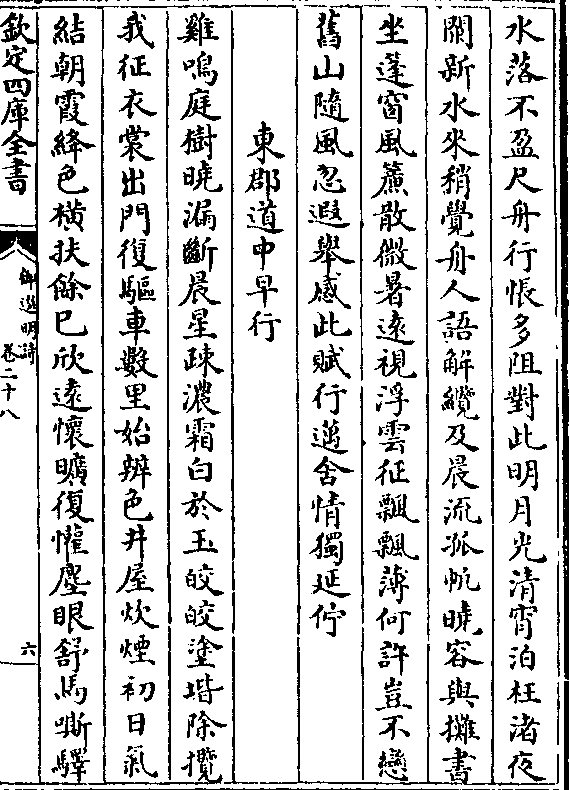 水落不盈尺舟行悵多阻對此明月光清宵泊枉渚夜
闌新水來稍覺舟人語解纜及晨流孤帆曉容與攤書
坐蓬窗風簾散微暑遠視浮雲征飄飄薄何許豈不戀
舊山隨風忽遐舉感此賦行邁舍情獨延佇
東郡道中早行
雞鳴庭樹曉漏斷晨星疎濃霜白於玉皎皎塗堦除攬
我征衣裳出門復驅車數里始辨色井屋炊煙初日氣
結朝霞絳色橫扶餘已欣遠懷曠復懽塵眼舒馬嘶驛
欽定四庫全書
御選明詩
卷二十八
六